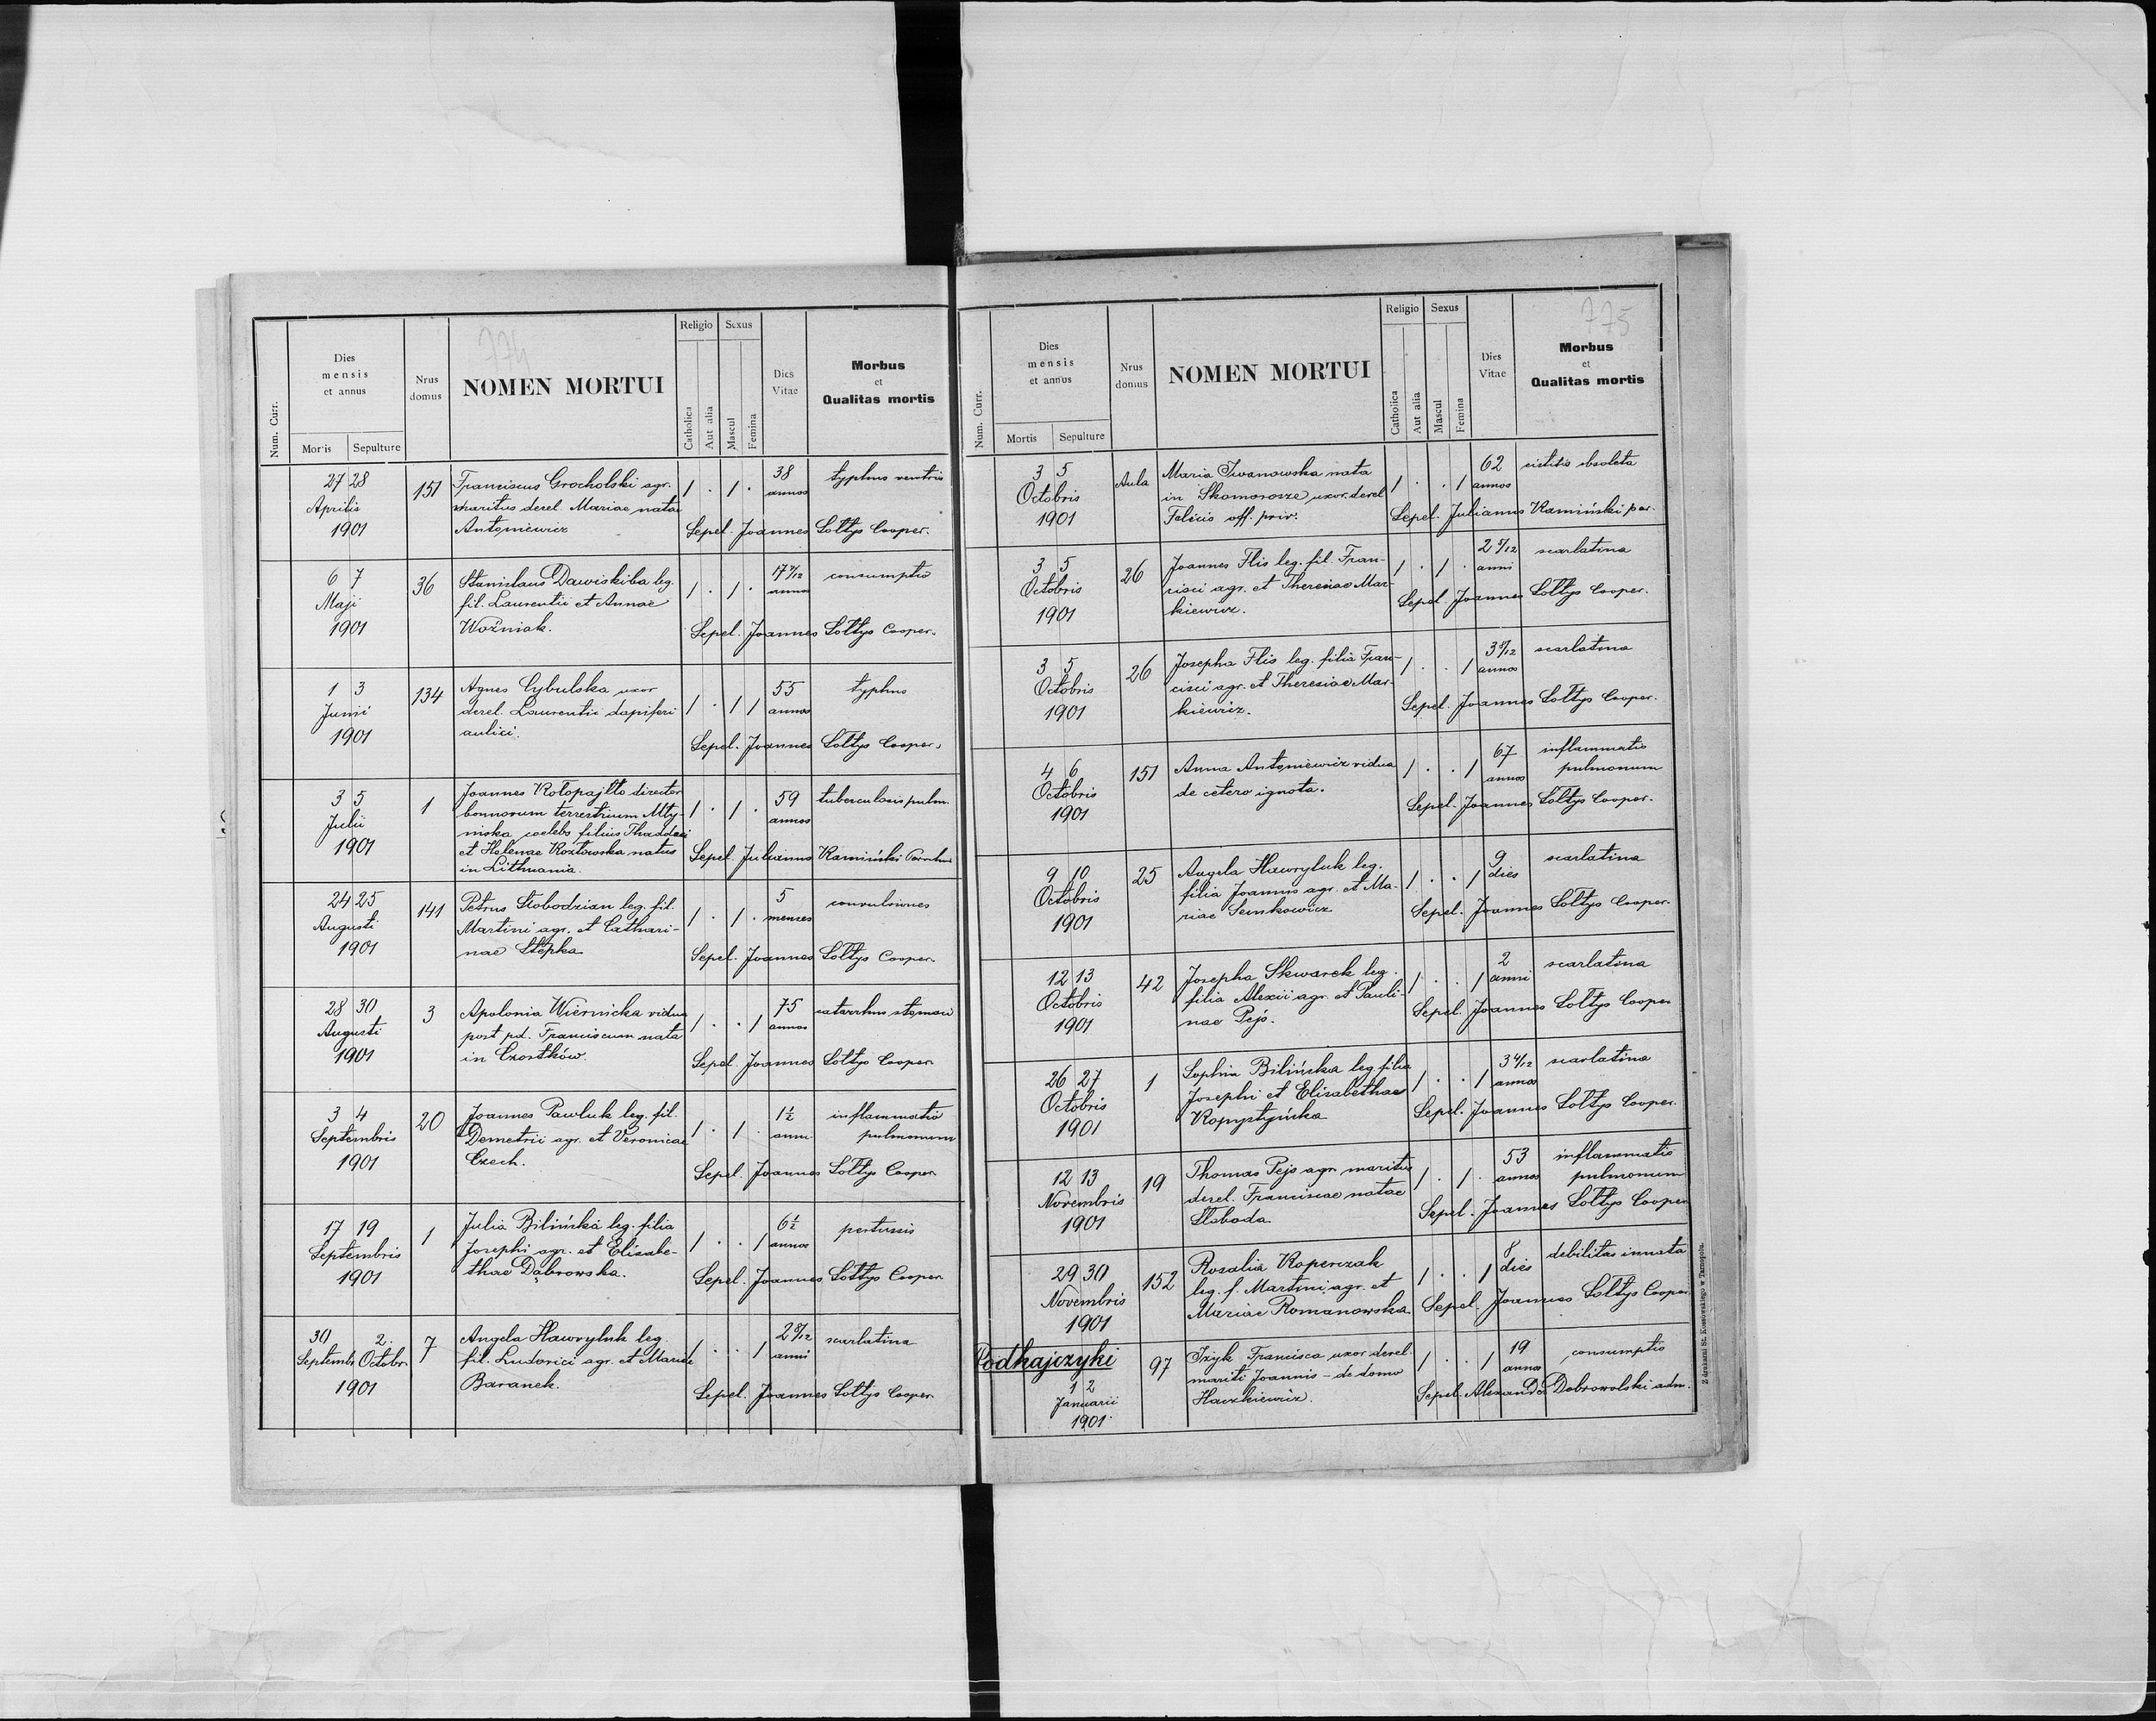 774
Num. Curr.
Dies
mensis
et annus
Mortis Sepulture
Nrus
domus
NOMEN MORTUI
Religio
Catholica
Aut alia
Sexus
Mascul
Femina
Dies
Vitae
Morbus
et
Qualitas mortis
27 28
Aprilis
1901
151
Franciscus Grocholski agr.
maritus derel. Mariae natae
Antoniewicz
1 . 1 .
38
annos
typhus ventris
Sepel. Joannes Sołtys Cooper.
6 7
Maji
1901
36
Stanislaus Dawiskiba leg.
fil. Laurentii et Annae
Woźniak.
1 . 1 .
annos
consumptio
Sepel. Joannes Sołtys Cooper.
1 3
Junii
1901
134
Agnes Cybulska uxor
derel. Laurentii dapiferi
aulici.
1 . 1 1
55
annos
typhus
Sepel. Joannes Sołtys Cooper.
3 5
Julii
1901
1
Joannes Kołopajłło director
bonnorum terrestrium Mły-
niska coelebs filius Thaddaei
et Helenae Kozłowska natus
in Lithuania.
1 . 1 .
59
annos
tuberculosis pulm.
Sepel. Julianus Kamiński
24 25
Augusti
1901
141
Petrus Słobodzian leg. fil.
Martini agr. et Cathari-
nae Stępka
1 . 1 .
5
menses
convulsiones
Sepel. Joannes Sołtys Cooper.
28 30
Augusti
1901
3
Apolonia Wiernicka vidua
post pd. Franciscum nata
in Czortków.
1 . . 1
75
annos
catarrhus stomaci
Sepel. Joannes Sołtys Cooper
3 4
Septembris
1901
20
Joannes Pawluk leg. fil.
Demetrii agr. et Veronicae
Czech.
1 . 1 .
1½
anni
inflammatio
pulmonum
Sepel. Joannes Sołtys Cooper
17 19
Septembris
1901
1
Julia Bilińska leg. filia
Josephi agr. et Elisabe-
thae Dąbrowska.
1 . . 1
6½
annos
pertussis
Sepel. Joannes Sołtys Cooper
30 2.
Septemb. Octobr.
1901
7
Angela Hawryluk leg.
fil. Ludovici agr. et Mariae
Baranek.
1 . . 1
2 8/12
anni
scarlatina
Sepel. Joannes Sołtys Cooper
775
Num. Curr.
Dies
mensis
et annus
Mortis Sepulture
Nrus
domus
NOMEN MORTUI
Religio
Catholica
Aut alia
Sexus
Mascul
Femina
Dies
Vitae
Morbus
et
Qualitas mortis
3 5
Octobris
1901
Aula
Maria Iwanowska nata
in Skomorosze uxor derel
Felicis off. priv.
1 . . 1
62
annos
cistitis obsoleta
Sepel. Julianus Kamiński par.
3 5
Octobris
1901
26
Joannes Flis leg. fil. Fran-
cisci agr. et Theresiae Mar-
kiewicz.
1 . 1 .
anni
scarlatina
Sepel. Joannes Sołtys Cooper.
3 5
Octobris
1901
26
Josepha Flis leg. filia Fran-
cisci agr. et Theresiae Mar-
kiewicz.
1 . . 1
annos
scarlatina
Sepel. Joannes Sołtys Cooper.
4 6
Octobris
1901
151
Anna Antoniewicz vidua
de cetero ignota.
1 . . 1
67
annos
inflammatio
pulmonum
Sepel. Joannes Sołtys Cooper.
9 10
Octobris
1901
25
Angela Hawryluk leg.
filia Joannis agr. et Ma-
riae Semkowicz
1 . . 1
9
dies
scarlatina
Sepel. Joannes Sołtys Cooper.
12 13
Octobris
1901
42
Josepha Skwarek leg.
filia Alexii agr. et Pauli-
nae Pejo.
1 . . 1
2
anni
scarlatina
Sepel. Joannes Sołtys Cooper
26 27
Octobris
1901
1
Sophia Bilińska leg. filia
Josephi et Elisabethae
Kopystyńska
1 . . 1
3 4/12
annos
scarlatina
Sepel. Joannes Sołtys Cooper.
12 13
Novembris
1901
19
Thomas Pejo agr. maritus
derel. Franciscae natae
Słoboda
1 . 1 .
53
annos
inflammatio
pulmonum
Sepel. Joannes Sołtys Cooper
29 30
Novembris
1901
152
Rosalia Koperczak
leg. f. Martini agr. et
Mariae Romanowska
1 . . 1
8
dies
debilitas innata
Sepel. Joannes Sołtys Cooper
Podhajczyki
1 2
Januarii
1901
97
Izyk Francisca uxor derel.
mariti Joannis - de domo
Haczkiewicz.
1 . . 1
19
annos
consumptio
Sepel. Alexander Dobrowolski adm.
Z drukarni St. Kossowskiego w Tarnopolu.